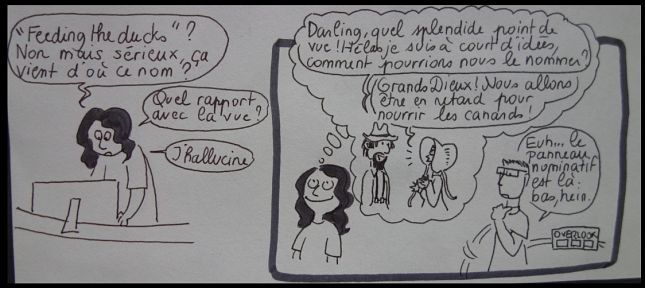 "Feeding the ducks"?
Non mais sérieux, ça
vient d'où ce nom?
Quel rapport
avec la vue?
J'hallucine
Darling, quel splendide point de
vue! Hélas je suis à court d'idées,
comment pourrions nous le nommer?
Grands Dieux! Nous allons
être en retard pour
nourrir les canards!
Euh... le
panneau
nominatif
est là-
bas, hein.
OVERLOOK